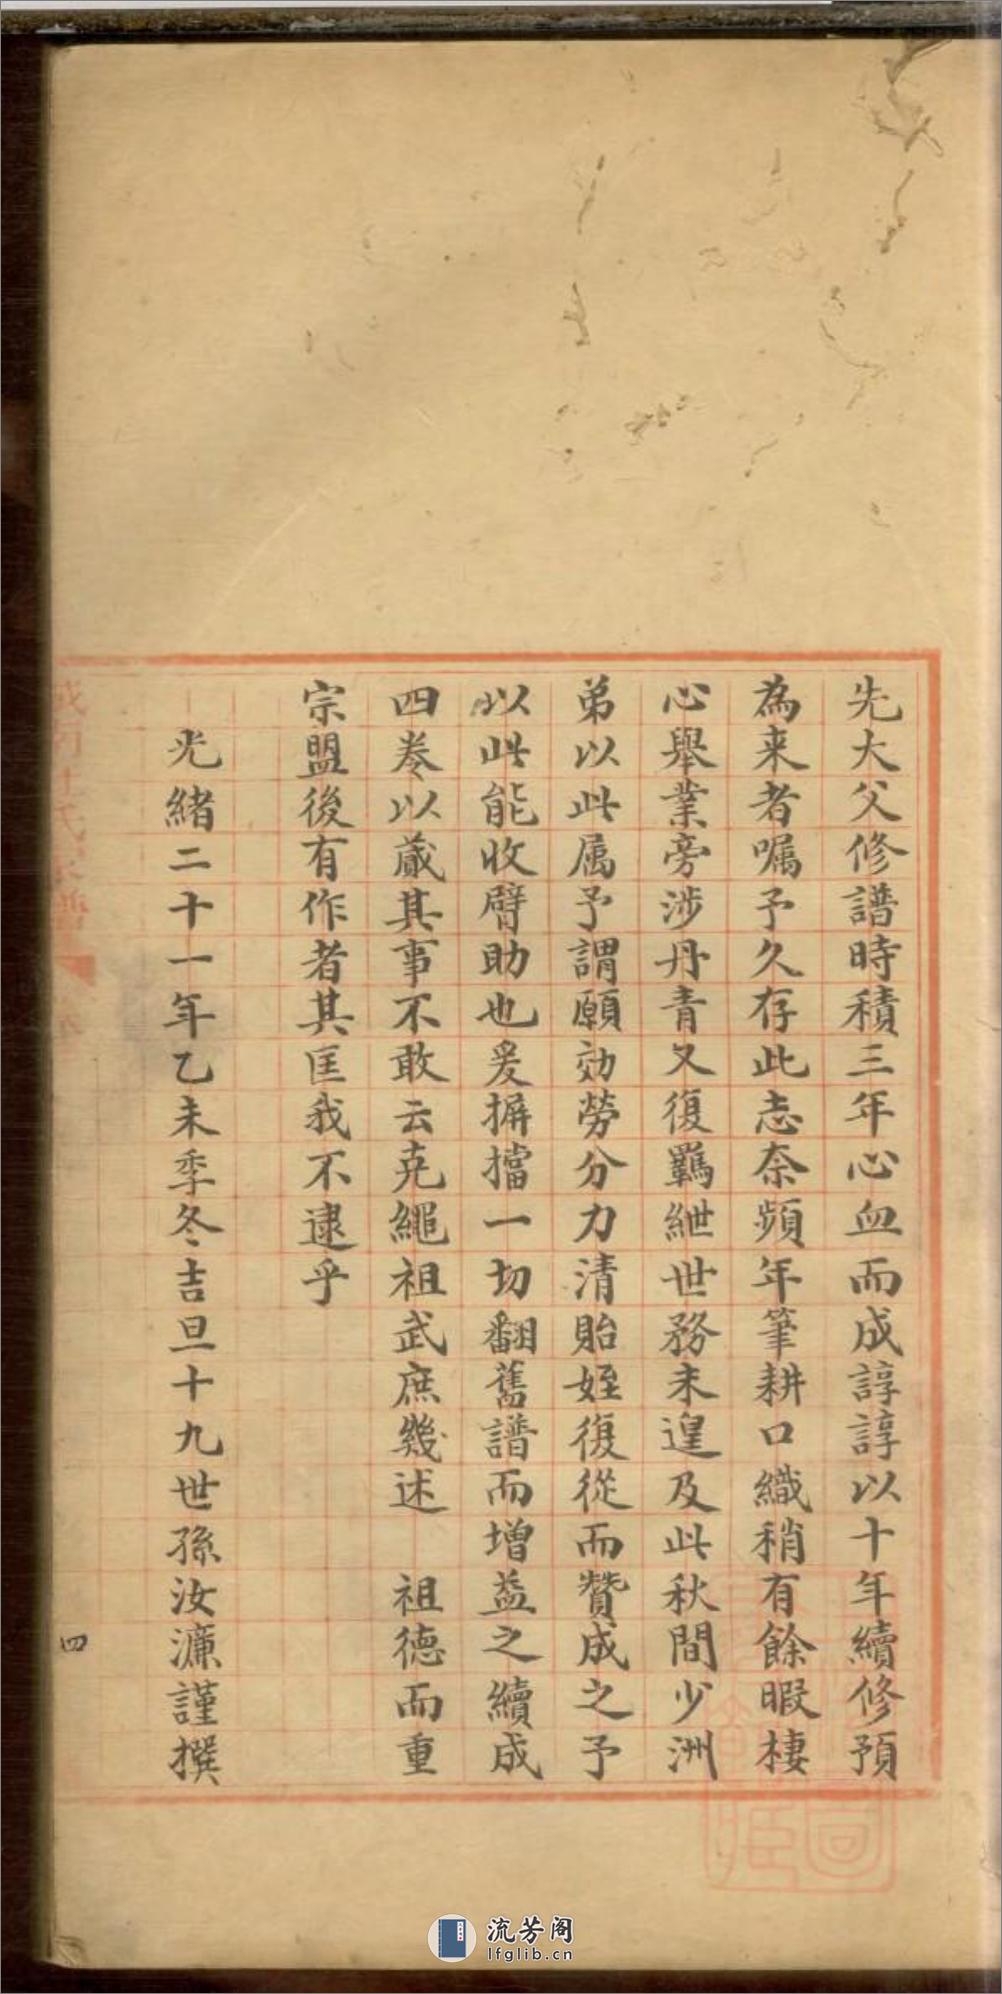 先大父修譜時積三年心血而成諄諄以十年續修預
為来者嘱予久存此志奈頻年筆耕口織稍有餘暇棲
心舉業旁涉丹青又復羈紲世務未遑及此秋間少洲
弟以此属予謂願効勞分力清貽姪復從而贊成之予
以此能收臂助也爰摒擋一切翻舊譜而增益之續成
四卷以蕆其事不敢云克繩祖武庶幾述 祖德而重
宗盟後有作者其匡我不逮乎
光緒二十一年乙未季冬吉旦十九世孫汝濂謹撰
四
流芳阁
lfglib.cn